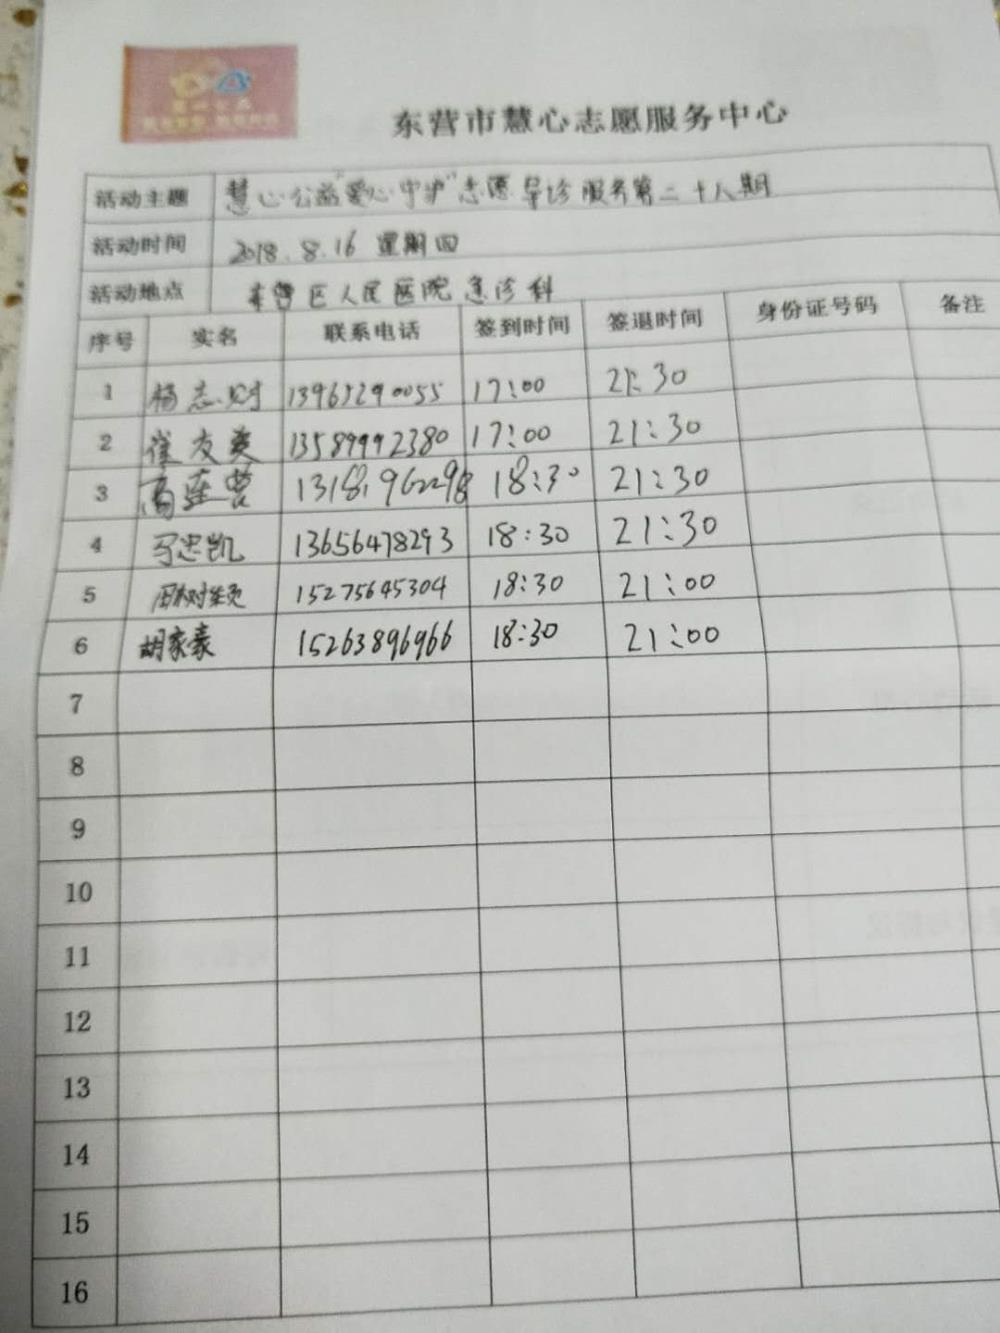 东营市慧心志愿服务中心
活动主题 慧心公益"爱心守护"志愿导诊服务第二十八期
活动时间 2018.8.16 星期四
活动地点 东营区人民医院急诊科
序号 实名 联系电话 签到时间 签退时间 身份证号码 备注
1 杨志财 17:00 21:30
2 崔友英 13589992380 17:00 21:30
3 18:30 21:30
4 马忠凯 13656478293 18:30 21:30
5 15275645304 18:30 21:00
6 胡家豪 15263896966 18:30 21:00
7
8
9
10
11
12
13
14
15
16